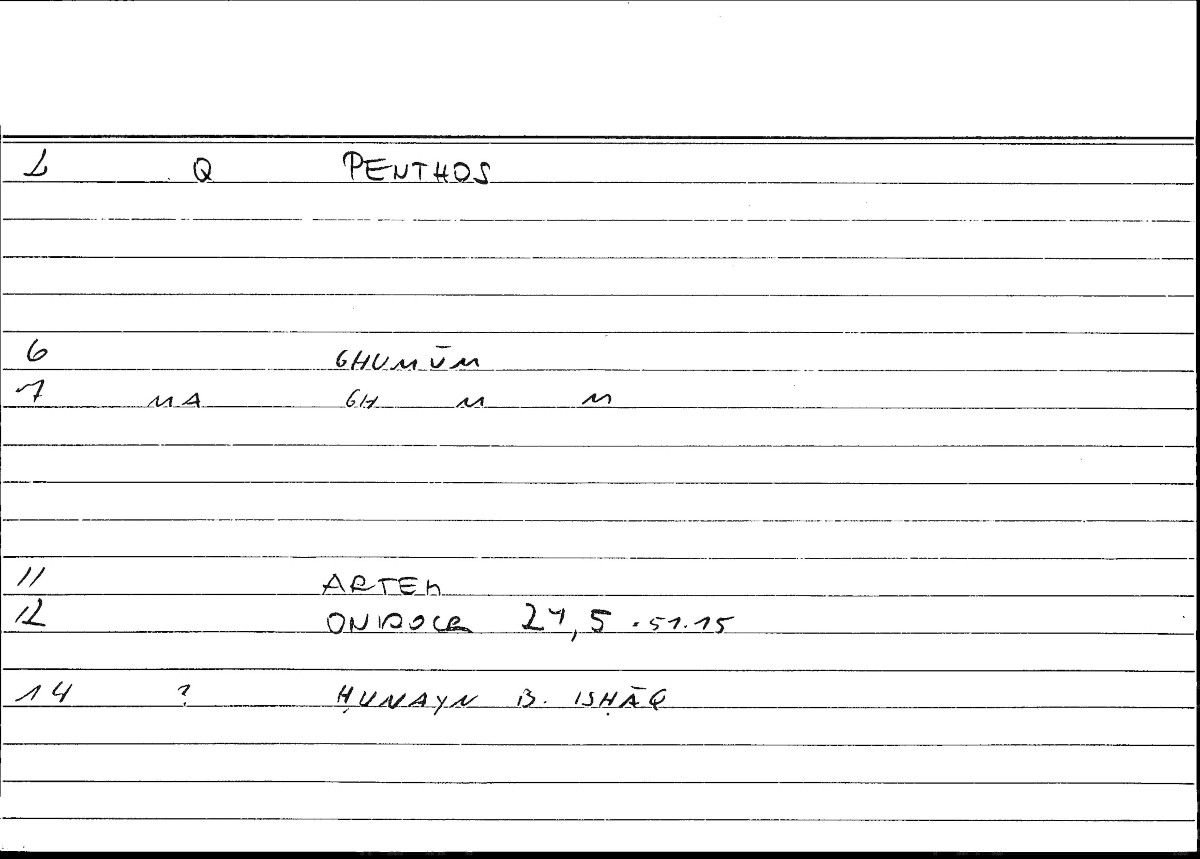 1 Q PENTHOS
6 GHUMŪM
7 MA GH M M
11 ARTEM
12 ONIROCR 24,5 · 51.15
14 ? ḤUNAYN B. ISḤĀQ